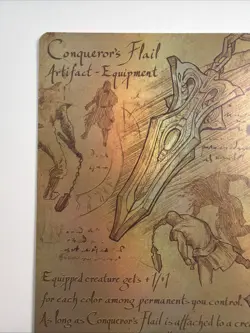 Conqueror's Flail
Artifact - Equipment
Equipped creature gets +1/+1
for each color among permanents you control.
As long as Conqueror's Flail is attached to a cr